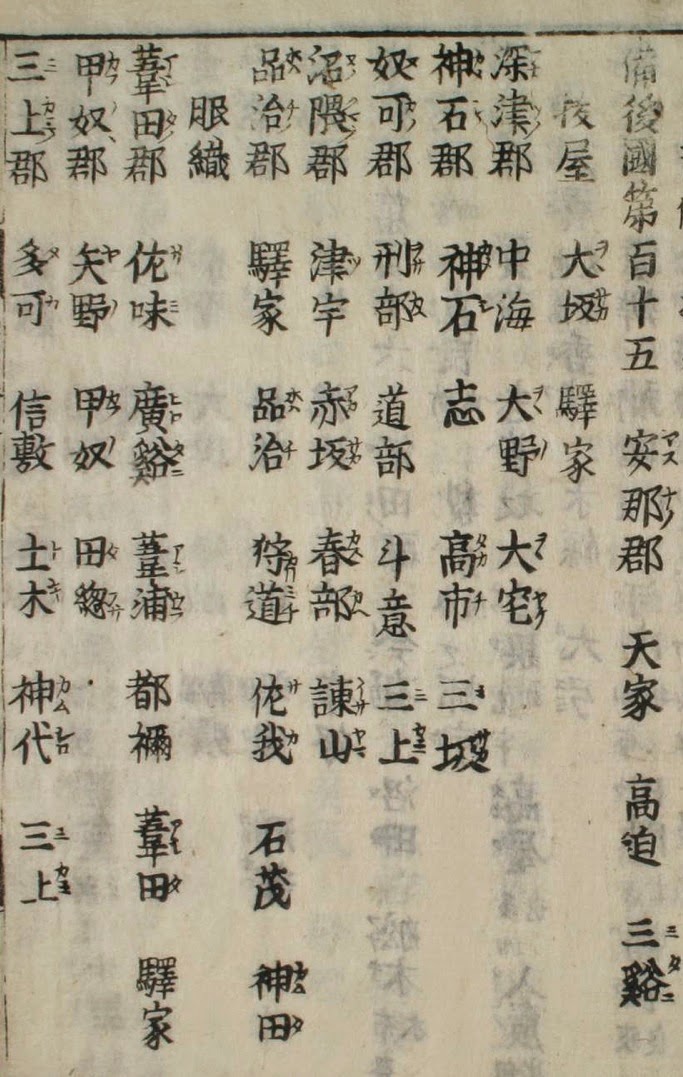 備後國第百十五 安那郡 天家 高迫 三谿
抜屋 大坂 驛家
深津郡 中海 大野 大宅
神石郡 神石 志 高市 三坂
奴可郡 刑部 道部 斗意 三上
沼隈郡 津宇 赤坂 春部 諫山
品治郡 驛家 品治 狩道 佐我 石茂 神田
服織
葦田郡 佐味 廣谿 葦浦 都禰 葦田 驛家
甲奴郡 矢野 甲奴 田總
三上郡 多可 信敷 土木 神代 三上